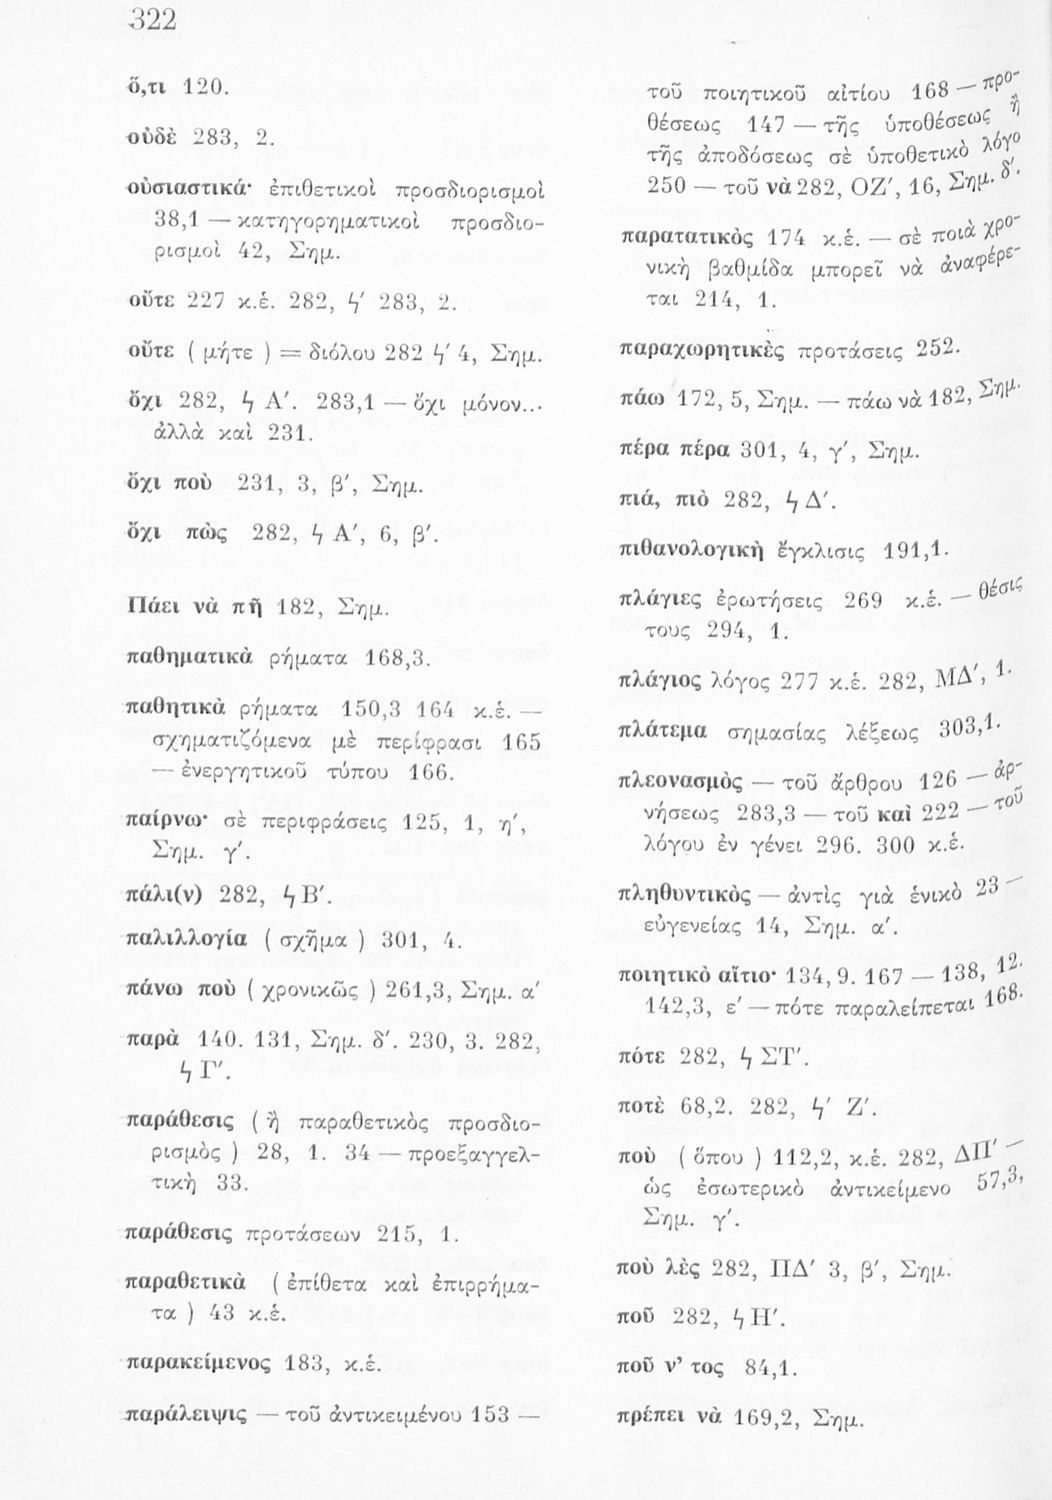 322
ὅ,τι 120.
οὐδὲ 283, 2.
οὐσιαστικά· ἐπιθετικοὶ προσδιορισμοὶ
38,1 — κατηγορηματικοὶ προσδιο-
ρισμοὶ 42, Σημ.
οὔτε 227 κ.ἑ. 282, ϟ' 283, 2.
οὔτε ( μήτε ) = διόλου 282 ϟ' 4, Σημ.
ὄχι 282, ϟ Α'. 283,1 — ὄχι μόνον...
ἀλλὰ καὶ 231.
ὄχι ποὺ 231, 3, β', Σημ.
ὄχι πὼς 282, ϟ Α', 6, β'.
Πάει νὰ πῆ 182, Σημ.
παθηματικὰ ρήματα 168,3.
παθητικὰ ρήματα 150,3 164 κ.ἑ. —
σχηματιζόμενα μὲ περίφρασι 165
— ἐνεργητικοῦ τύπου 166.
παίρνω· σὲ περιφράσεις 125, 1, η',
Σημ. γ'.
πάλι(ν) 282, ϟ Β'.
παλιλλογία ( σχῆμα ) 301, 4.
πάνω ποὺ ( χρονικῶς ) 261,3, Σημ. α'
παρὰ 140. 131, Σημ. δ'. 230, 3. 282,
ϟ Γ'.
παράθεσις ( ἢ παραθετικὸς προσδιο-
ρισμὸς ) 28, 1. 34 — προεξαγγελ-
τικὴ 33.
παράθεσις προτάσεων 215, 1.
παραθετικὰ ( ἐπίθετα καὶ ἐπιρρήμα-
τα ) 43 κ.ἑ.
παρακείμενος 183, κ.ἑ.
παράλειψις — τοῦ ἀντικειμένου 153 —
τοῦ ποιητικοῦ αἰτίου 168 — προ-
θέσεως 147 — τῆς ὑποθέσεως ἢ
τῆς ἀποδόσεως σὲ ὑποθετικὸ λόγο
250 — τοῦ νὰ 282, ΟΖ', 16, Σημ. δ'.
παρατατικὸς 174 κ.ἑ. — σὲ ποιὰ χρο-
νικὴ βαθμίδα μπορεῖ νὰ ἀναφέρε-
ται 214, 1.
παραχωρητικὲς προτάσεις 252.
πάω 172, 5, Σημ. — πάω νὰ 182, Σημ.
πέρα πέρα 301, 4, γ', Σημ.
πιά, πιὸ 282, ϟ Δ'.
πιθανολογικὴ ἔγκλισις 191,1.
πλάγιες ἐρωτήσεις 269 κ.ἑ. — θέσις
τους 294, 1.
πλάγιος λόγος 277 κ.ἑ. 282, ΜΔ', 1.
πλάτεμα σημασίας λέξεως 303,1.
πλεονασμὸς — τοῦ ἄρθρου 126 — ἀρ-
νήσεως 283,3 — τοῦ καὶ 222 — τοῦ
λόγου ἐν γένει 296. 300 κ.ἑ.
πληθυντικὸς — ἀντὶς γιὰ ἑνικὸ 23 —
εὐγενείας 14, Σημ. α'.
ποιητικὸ αἴτιο· 134, 9. 167 — 138, 12.
142,3, ε' — πότε παραλείπεται 168.
πότε 282, ϟ ΣΤ'.
ποτὲ 68,2. 282, ϟ' Ζ'.
ποὺ ( ὅπου ) 112,2, κ.ἑ. 282, ΔΠ' —
ὡς ἐσωτερικὸ ἀντικείμενο 57,3,
Σημ. γ'.
ποὺ λὲς 282, ΠΔ' 3, β', Σημ.
ποῦ 282, ϟ Η'.
ποῦ ν' τος 84,1.
πρέπει νὰ 169,2, Σημ.